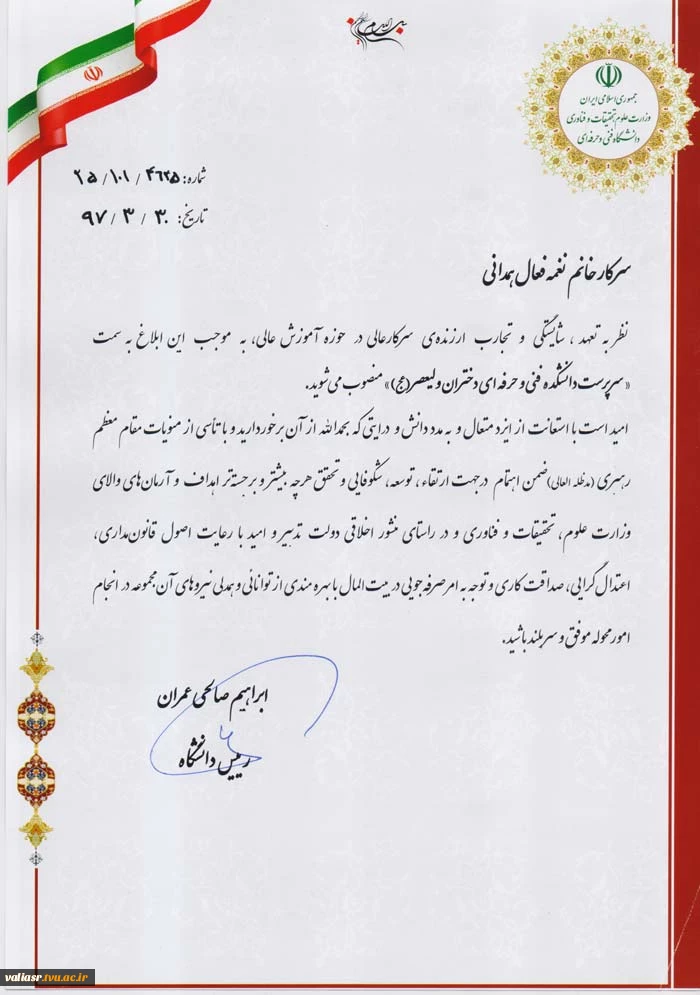 جمهوری اسلامی ایران
وزارت علوم، تحقیقات و فناوری
دانشگاه فنی و حرفه ای
شماره: ۲۵/۱۰۱/۴۶۲۵
تاریخ: ۹۷/۳/۳۰
سرکار خانم نغمه فعال همدانی
نظر به تعهد، شایستگی و تجارب ارزنده‌ی سرکارعالی در حوزه آموزش عالی، به موجب این ابلاغ به سمت
«سرپرست دانشکده فنی و حرفه ای دختران ولیعصر(عج)» منصوب می شوید.
امید است با استعانت از ایزد متعال و به مدد دانش و درایتی که بحمدالله از آن برخوردارید و با تأسی از منویات مقام معظم
رهبری (مدظله العالی) ضمن اهتمام در جهت ارتقاء، توسعه، شکوفایی و تحقق هرچه بیشتر و برجسته‌تر اهداف و آرمان‌های والای
وزارت علوم، تحقیقات و فناوری و در راستای منشور اخلاقی دولت تدبیر و امید با رعایت اصول قانون‌مداری،
اعتدال گرایی، صداقت کاری و توجه به امر صرفه جویی در بیت المال با بهره مندی از توانائی و همدلی نیروهای آن مجموعه در انجام
امور محوله موفق و سربلند باشید.
ابراهیم صالحی عمران
رییس دانشگاه
valiasr.tvu.ac.ir